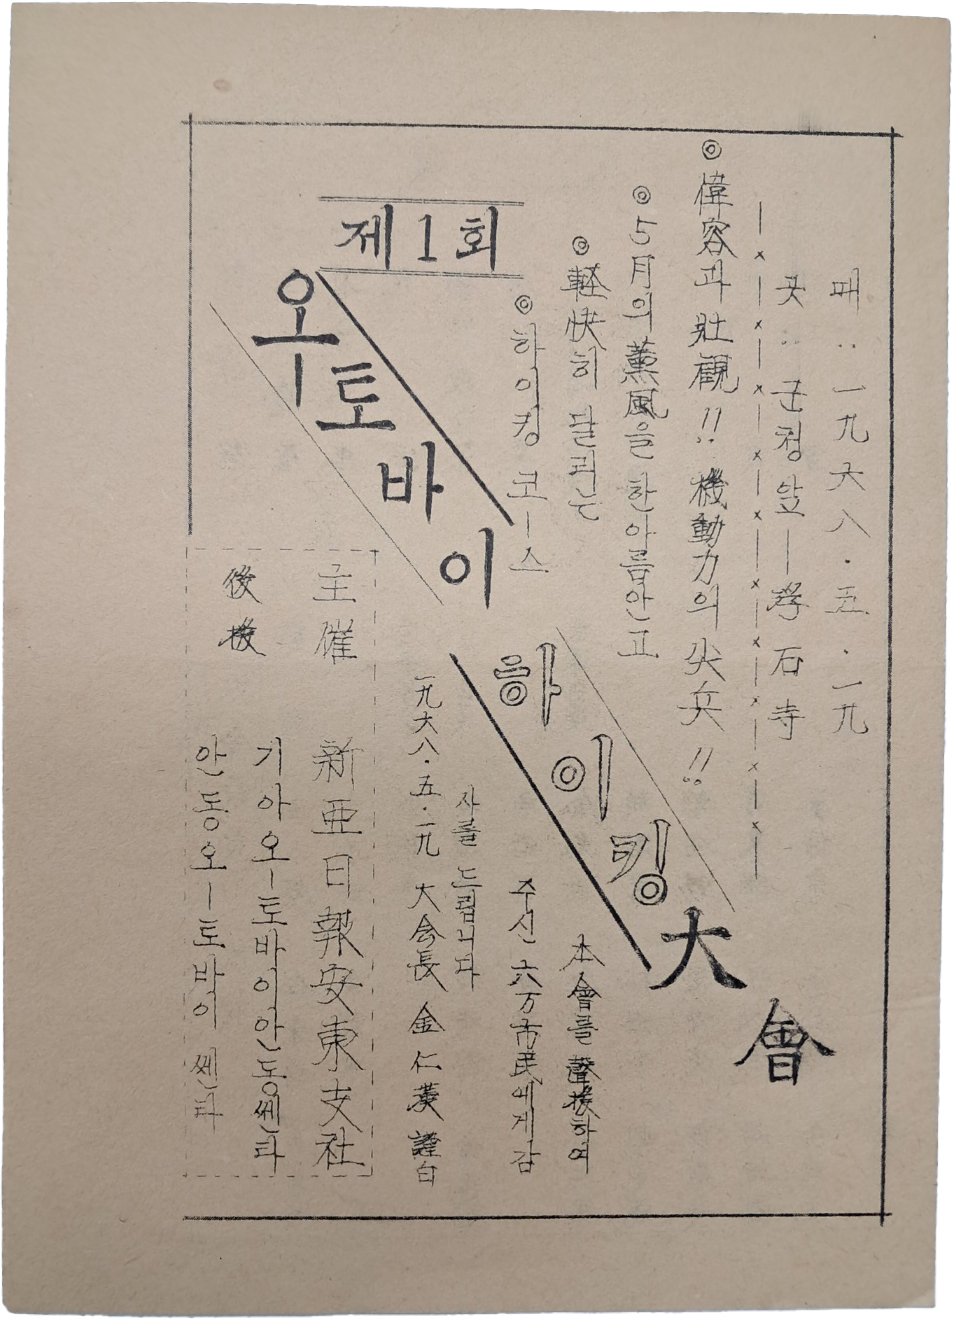 때‥一九六八·五·一九
곳‥군청앞─孝石寺
◎偉容과 壯觀!! 機動力의 尖兵!!
◎5月의 薰風을 한아름안고
◎軽快히 달리는
◎하이킹 코-스
제1회
오토바이 하이킹 大會
本會를 聲援하여
주신 六万市民에게 감
사를 드립니다
一九六八·五·一九 大会長 金仁漢 謹白
主催 新亜日報安東支社
後援 기아오-토바이안동쎈타
안동오-토바이 쎈타